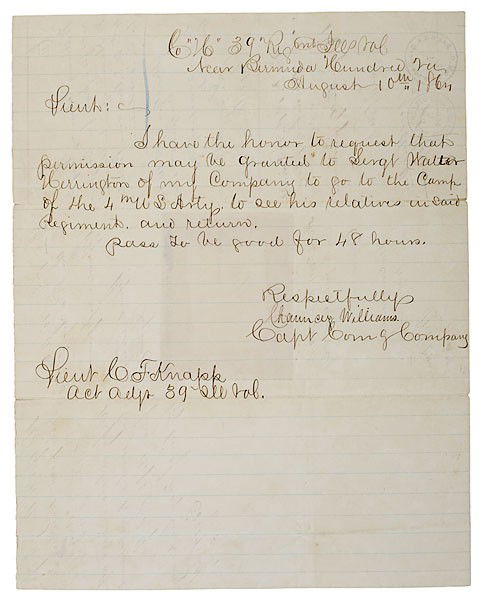 Co "H" 39" Regmt Ills Vol
Near Bermuda Hundred Va
August 10th 1864
Lieut:
I have the honor to request that
permission may be granted to Sergt Walter
Herrington of my Company to go to the Camp
of the 4th U S Arty, to see his relatives in said
Regiment. and return.
pass to be good for 48 hours.
Respectfully
Chauncey Williams
Capt Comg Company
Lieut C F Knapp
Act Adjt 39 Ill Vol.